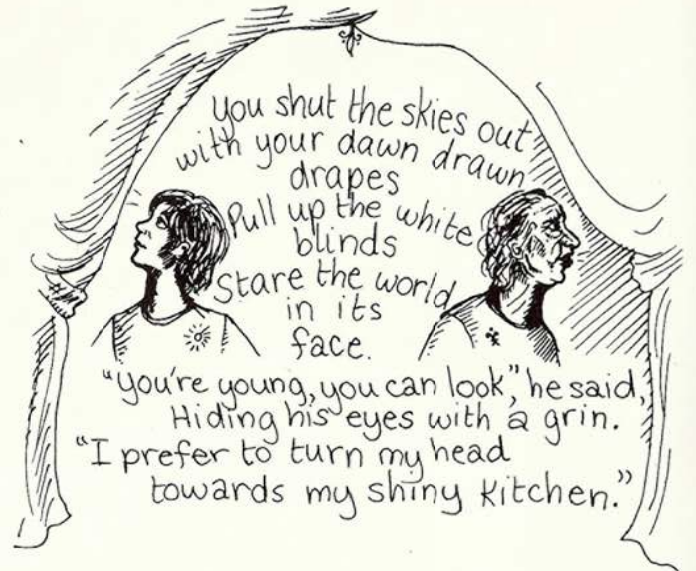 you shut the skies out
with your dawn drawn
drapes
Pull up the white
blinds
Stare the world
in its
face.
"you're young, you can look", he said,
Hiding his eyes with a grin.
"I prefer to turn my head
towards my shiny kitchen."